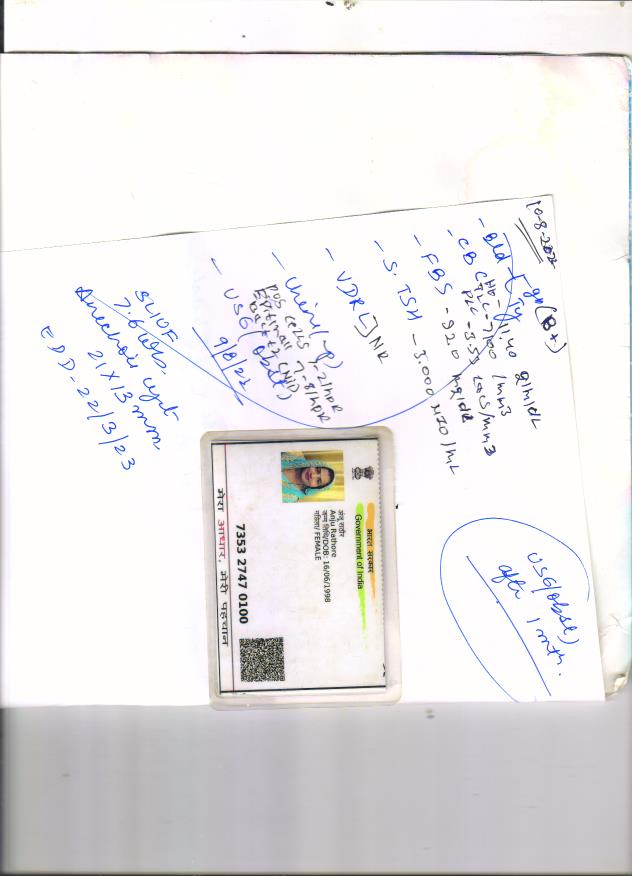 10-8-2022
- Bld gr (B+)
- CBC Hb - 11.40 gm/dL
TLC - 7100 /mm3
PLC - 3.53 Lacs/mm3
- FBS - 92.0 mg/dL
- S. TSH - 3.000 μIU/mL
- VDRL NR
- Urine
Pus cells 1-2/HPF
Epithelial 7-8/HPF
- USG (Obst)
9/8/22
SLIUF
7.6 wks.
Anechoic cyst
21 X 13 mm
EDD - 22/3/23
USG (Obst)
after 1 mth.
भारत सरकार
Government of India
अंजू राठौर
Anju Rathore
जन्म तिथि/DOB: 16/06/1998
महिला/ FEMALE
7353 2747 0100
मेरा आधार, मेरी पहचान